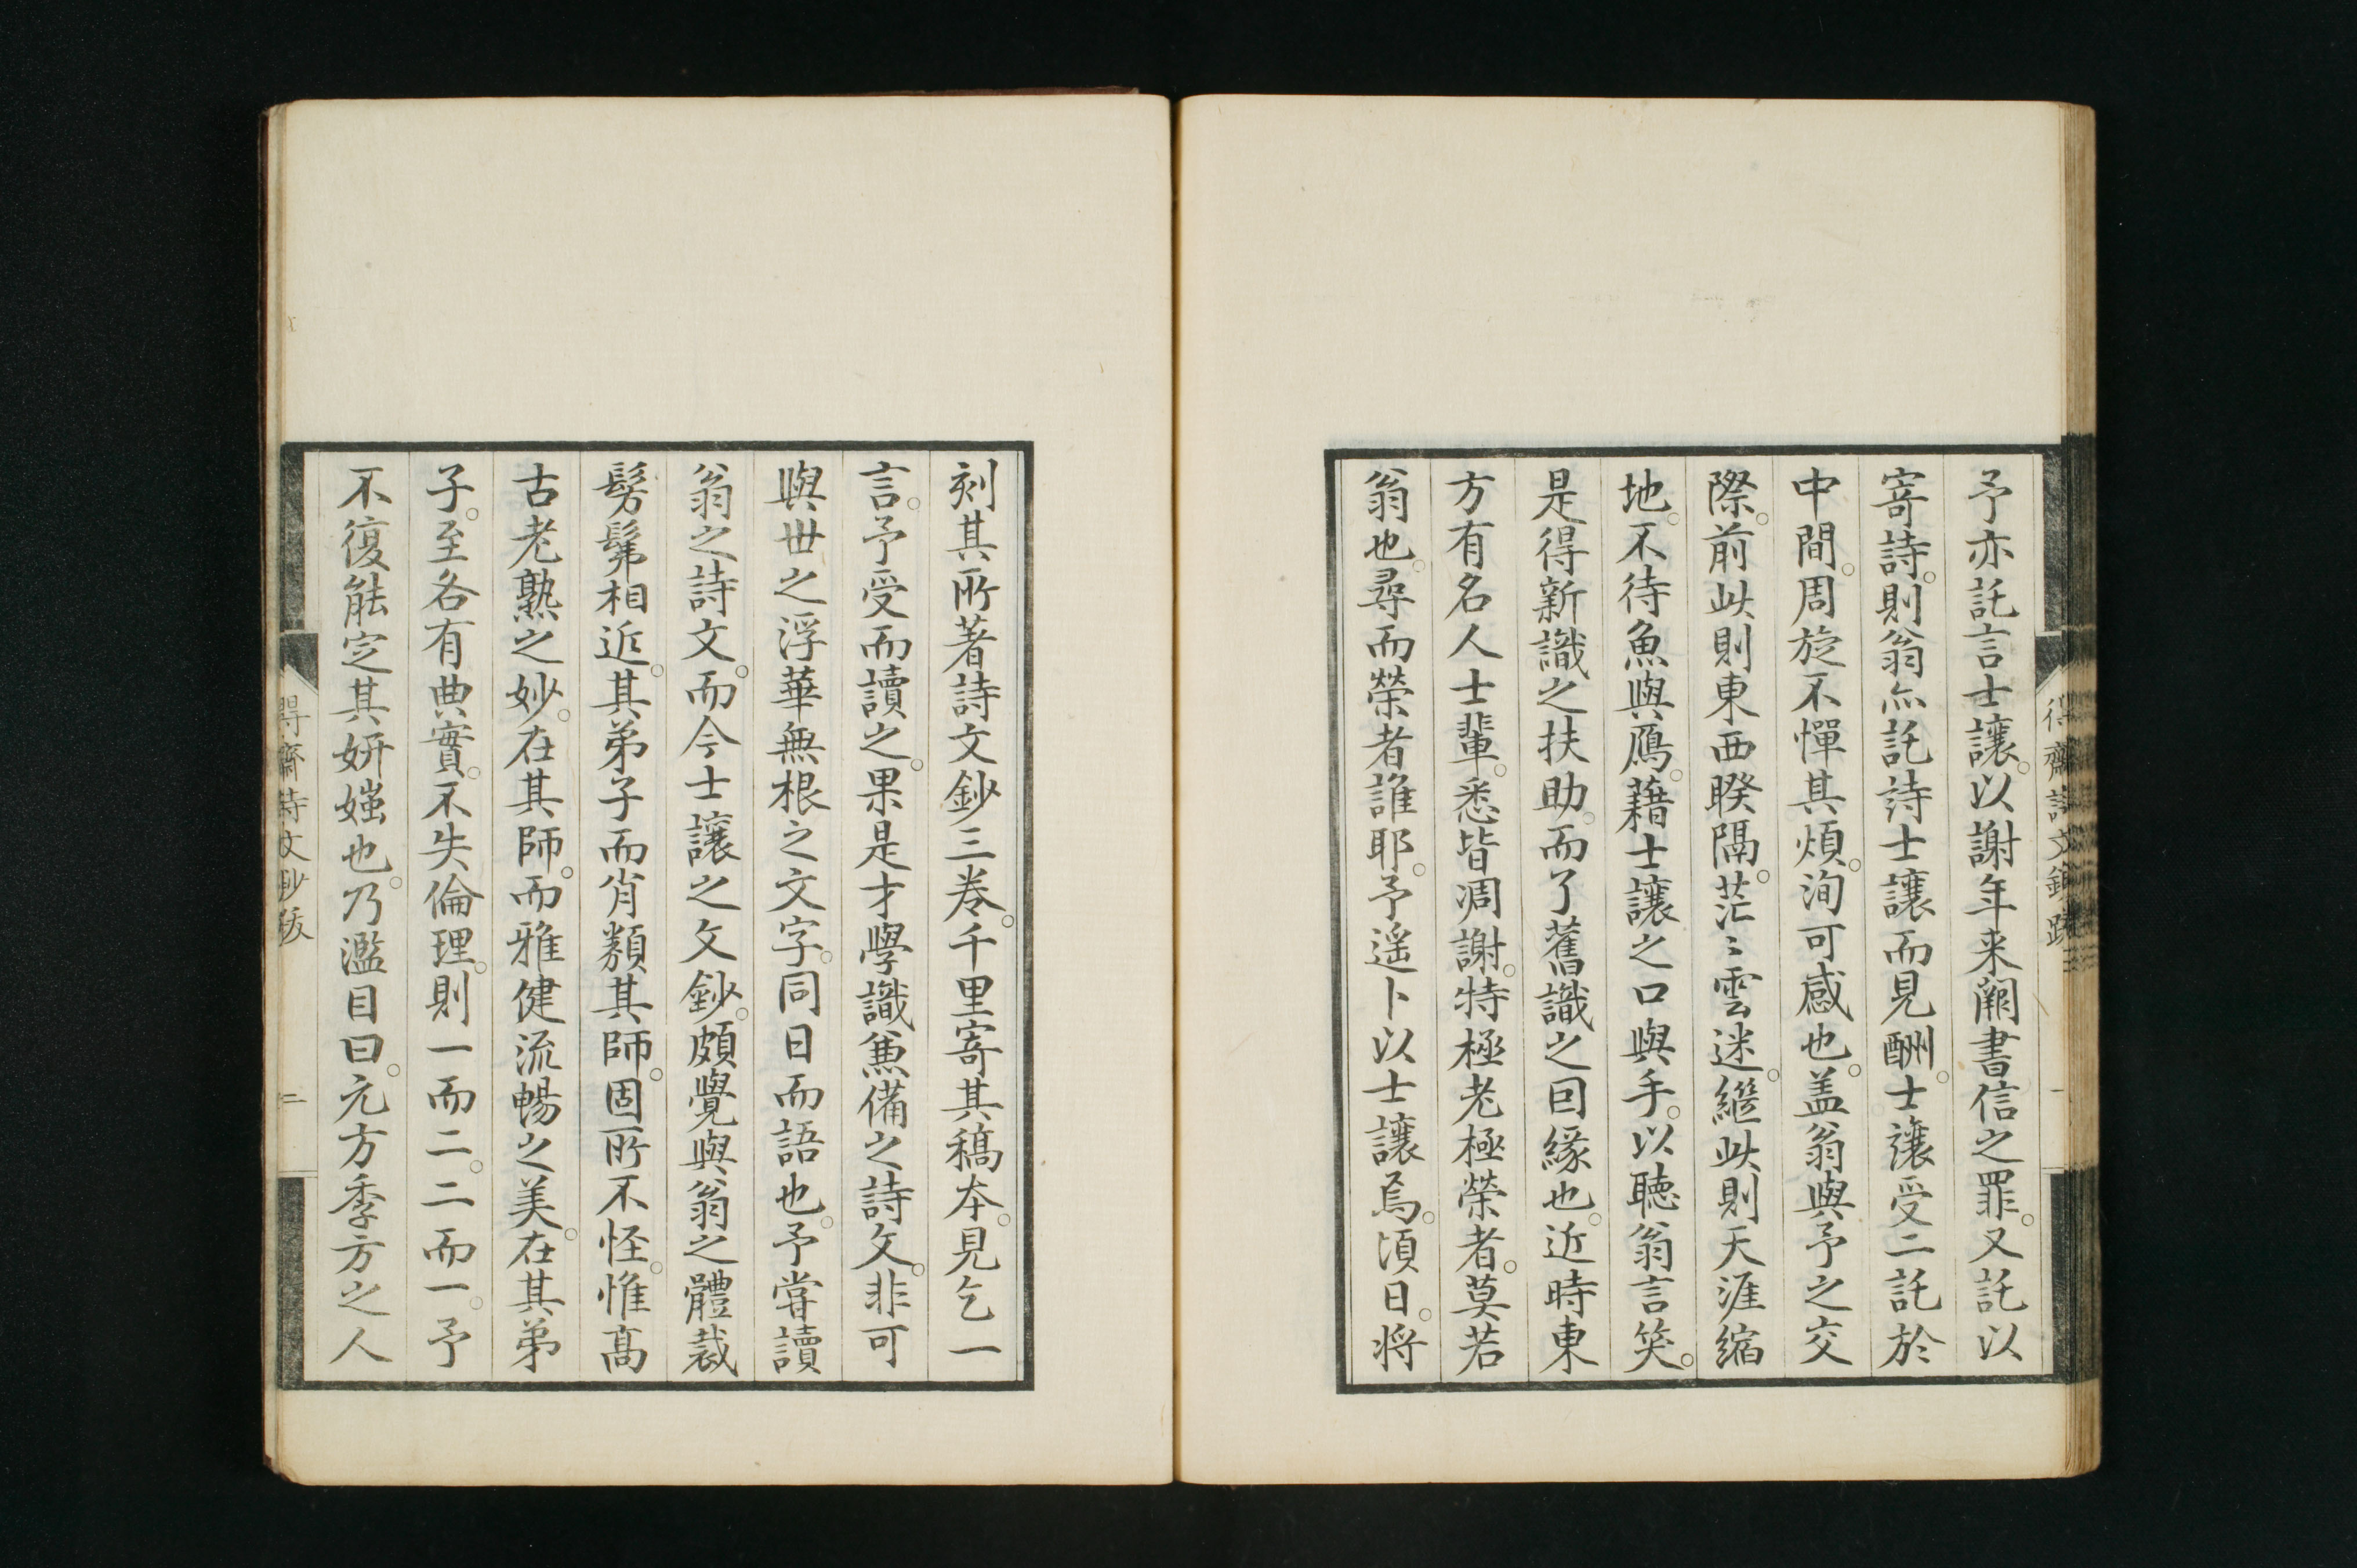 予亦託言士讓。以謝年来闕書信之罪。又託以
寄詩。則翁亦託詩士讓而見酬。士讓受二託於
中間。周旋不憚其煩。洵可感也。盖翁與予之交
際。前此則東西暌隔。茫〻雲迷。繼此則天涯縮
地。不待魚與鴈。藉士讓之口與手。以聴翁言笑。
是得新識之扶助。而了舊識之囙緣也。近時東
方有名人士輩。悉皆凋謝。特極老極榮者。莫若
翁也。尋而榮者誰耶。予遥卜以士讓焉。頃日。将
刻其所著詩文鈔三卷。千里寄其稿本。見乞一
言。予受而讀之。果是才學識兼備之詩文。非可
與世之浮華無根之文字。同日而語也。予嘗讀
翁之詩文。而今士讓之文鈔。頗覺與翁之體裁
髣髴相近。其弟子而肖類其師。固所不怪。惟髙
古老熟之妙。在其師。而雅健流暢之美。在其弟
子。至各有典實。不失倫理。則一而二。二而一。予
不復能定其妍媸也。乃濫目曰。元方季方之人
得齋詩文鈔跋
一
得齋詩文鈔跋
二